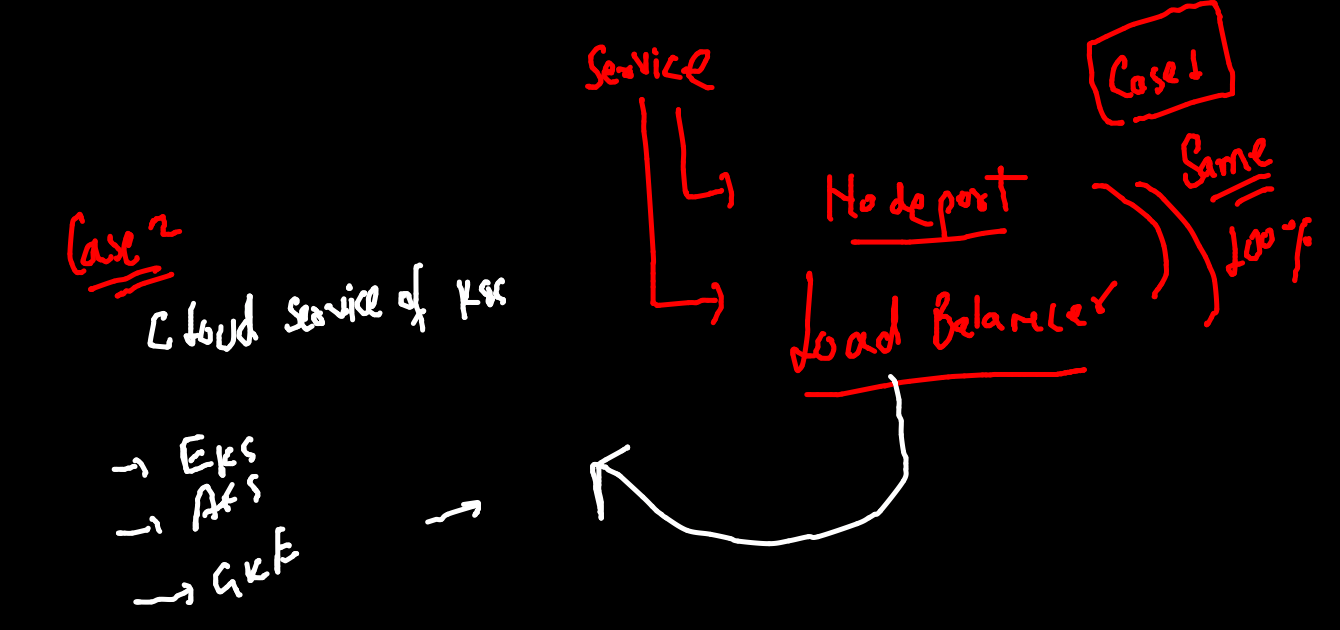 Service
Case 1
Nodeport
Same
100%
Load Balancer
Case 2
Cloud service of K8s
→ EKS
→ AKS
→ GKE